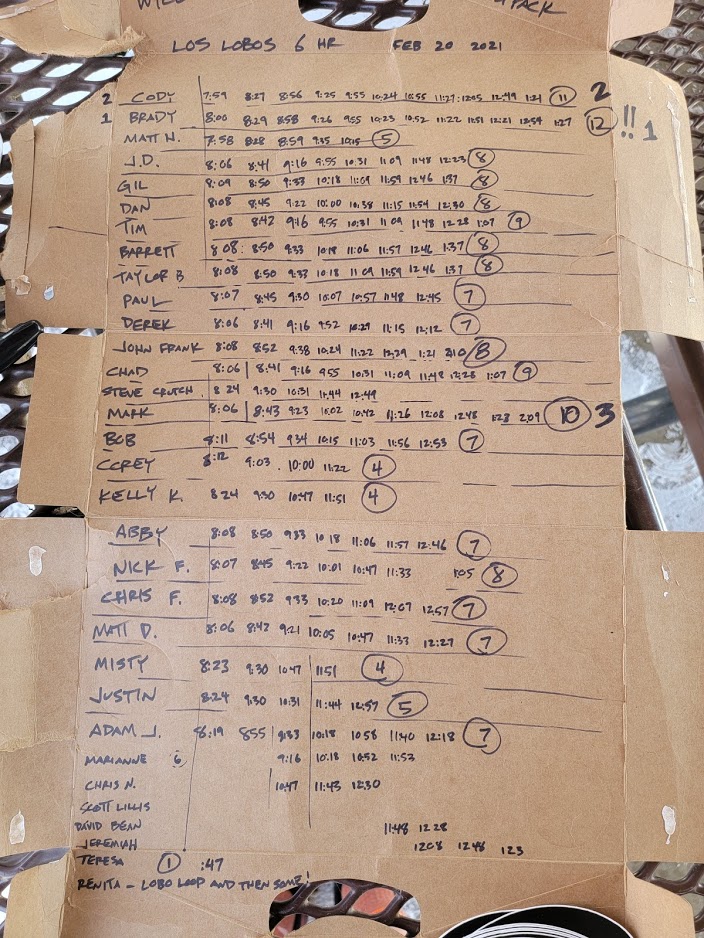 PACK
LOS LOBOS 6 HR FEB 20 2021
2 CODY 7:59 8:27 8:56 9:25 9:55 10:24 10:55 11:27 12:05 12:49 1:21 11 2
1 BRADY 8:00 8:29 8:58 9:26 9:55 10:23 10:52 11:22 11:51 12:21 12:54 1:27 12 !! 1
MATT N. 7:58 8:28 8:59 9:35 10:15 5
J.D. 8:06 8:41 9:16 9:55 10:31 11:09 11:48 12:23 8
GIL 8:09 8:50 9:33 10:18 11:09 11:59 12:46 1:37 8
DAN 8:08 8:45 9:22 10:00 10:38 11:15 11:54 12:30 8
TIM 8:08 8:42 9:16 9:55 10:31 11:09 11:48 12:28 1:07 9
BARRETT 8:08 8:50 9:33 10:18 11:06 11:57 12:46 1:37 8
TAYLOR B 8:08 8:50 9:33 10:18 11:09 11:59 12:46 1:37 8
PAUL 8:07 8:45 9:30 10:07 10:57 11:48 12:45 7
DEREK 8:06 8:41 9:16 9:52 10:29 11:15 12:12 7
JOHN FRANK 8:08 8:52 9:38 10:24 11:22 12:29 1:21 2:10 8
CHAD 8:06 8:41 9:16 9:55 10:31 11:09 11:48 12:28 1:07 9
STEVE CRUTCH 8 24 9:30 10:31 11:44 12:49
MARK 8:06 8:43 9:23 10:02 10:42 11:26 12:08 12:48 1:28 2:09 10 3
BOB 8:11 8:54 9:34 10:15 11:03 11:56 12:53 7
COREY 8:12 9:03 10:00 11:22 4
KELLY K. 8 24 9:30 10:47 11:51 4
ABBY 8:08 8:50 9:33 10 18 11:06 11:57 12:46 7
NICK F. 8:07 8:45 9:22 10:01 10:47 11:33 1:05 8
CHRIS F. 8:08 8:52 9:33 10:20 11:09 12:07 12:57 7
MATT D. 8:06 8:42 9:21 10:05 10:47 11:33 12:27 7
MISTY 8:23 9:30 10:47 11:51 4
JUSTIN 8:24 9:30 10:31 11:44 12:57 5
ADAM J. 8:19 8:55 9:33 10:18 10 58 11:40 12:18 7
MARIANNE 6 9:16 10:18 10:52 11:53
CHRIS N. 10:47 11:43 12:30
SCOTT LILLIS
DAVID BEAN 11:48 12 28
JEREMIAH 12:08 12 48 1 23
TERESA 1 :47
RENITA - LOBO LOOP AND THEN SOME!